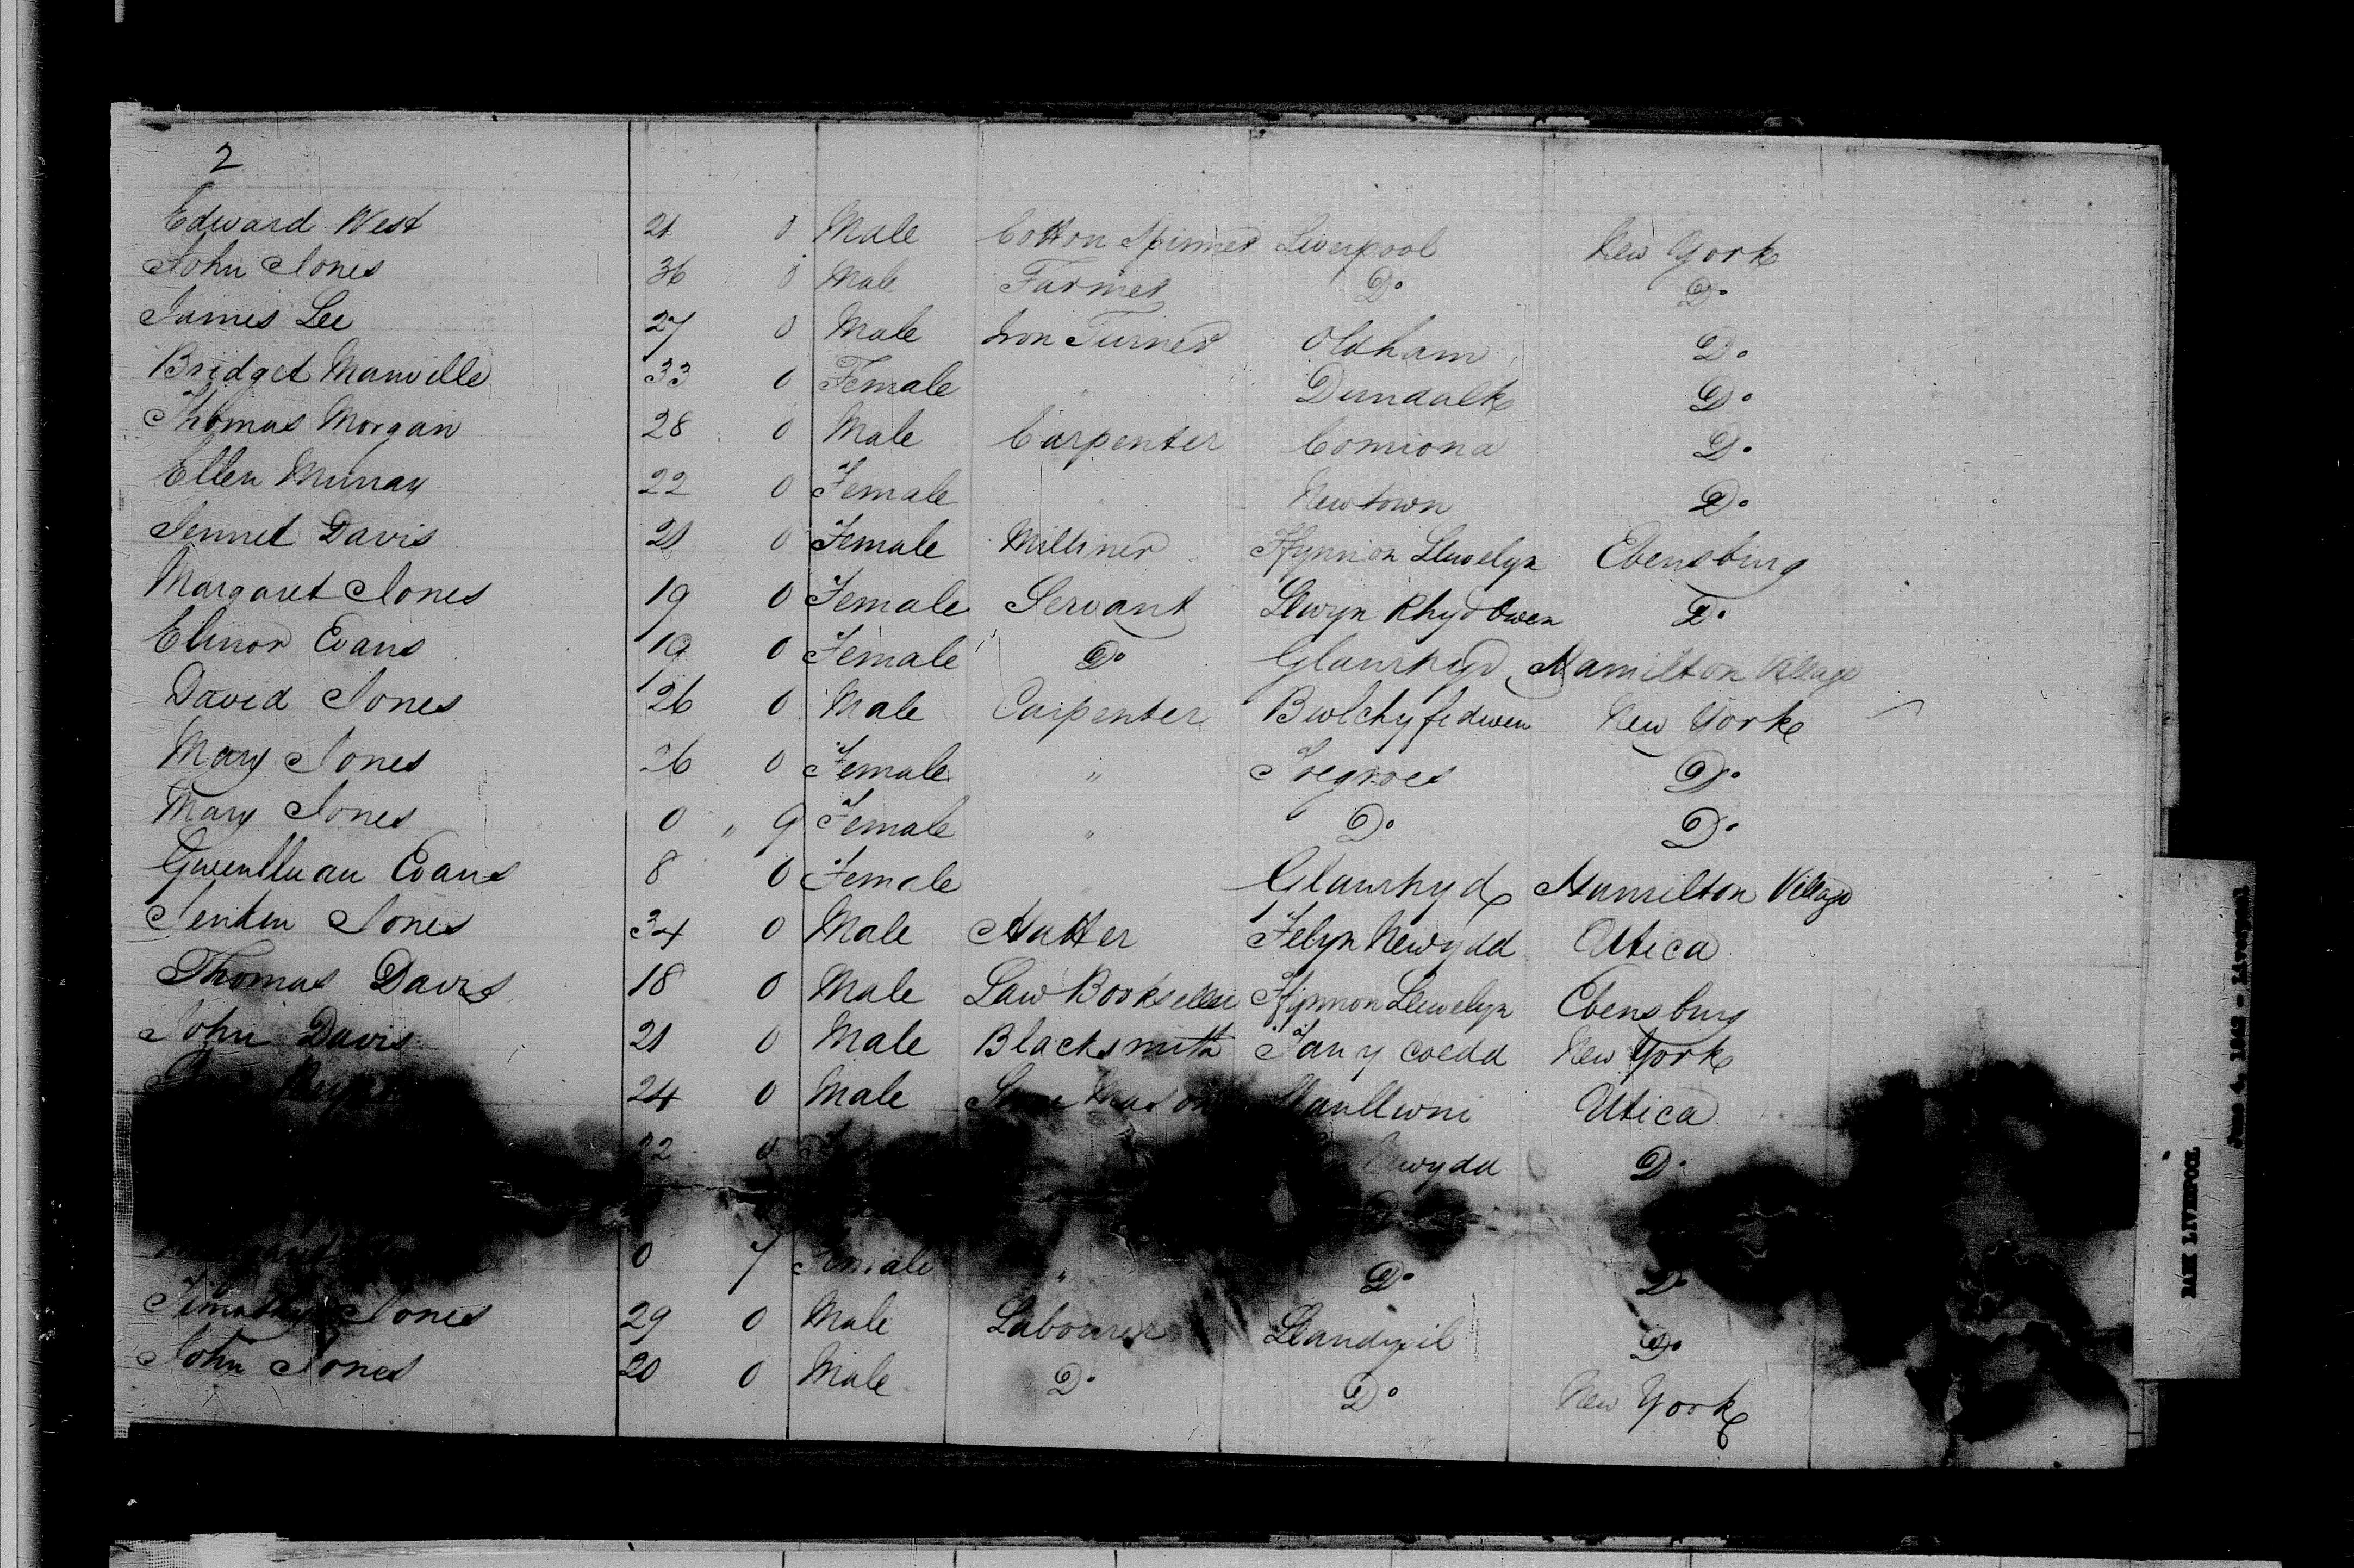 2
Edward West 21 0 Male Cotton Spinner Liverpool New York
John Jones 36 0 Male Farmer Do Do
James Lee 27 0 Male Iron Turner Oldham Do
Bridget Manville 33 0 Female " Dundalk Do
Thomas Morgan 28 0 Male Carpenter Comiona Do
Ellen Murray 22 0 Female " Newtown Do
Jennet Davis 21 0 Female Milliner Ffynnon Llewelyn Ebensburg
Margaret Jones 19 0 Female Servant Llwyn Rhyd Owen Do
Elinor Evans 19 0 Female Do Glanrhyd Hamilton Village
David Jones 26 0 Male Carpenter Bwlchyfedwen New York
Mary Jones 26 0 Female " Tregroes Do
Mary Jones 0 " 9 Female " Do Do
Gwenlluan Evans 8 0 Female Glanrhyd Hamilton Village
Jenken Jones 34 0 Male Hatter Felyn Newydd Utica
Thomas Davis 18 0 Male Law Bookseller Ffynnon Llewelyn Ebensburg
John Davis 21 0 Male Blacksmith Tan y coedd New York
24 0 Male Mason Llanllwni Utica
22 0 Newydd Do
0 7 Female " Do Do
Timothy Jones 29 0 Male Labourer Llandysil Do
John Jones 20 0 Male Do Do New York
RANK LIVERPOOL